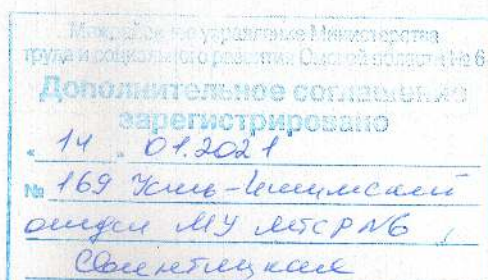 Межрайонное управление Министерства
труда и социального развития Омской области № 6
Дополнительное соглашение
зарегистрировано
« 14 » 01.2021
№ 169 Усть-Ишимский
отдел МУ МТСР №6,